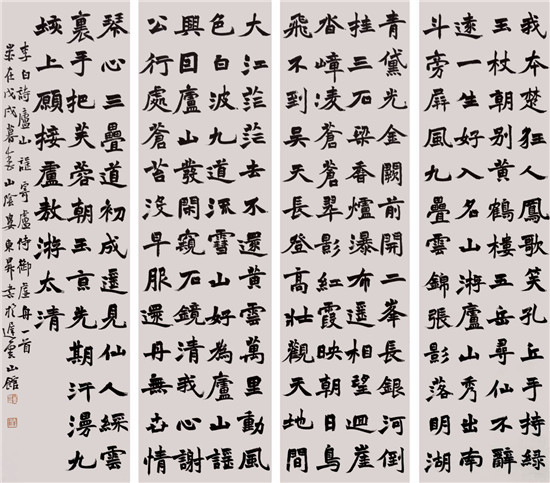 我本楚狂人鳳歌笑孔丘手持綠
玉杖朝別黃鶴樓五岳尋仙不辭
遠一生好入名山游廬山秀出南
斗旁屏風九疊雲錦張影落明湖
青黛光金闕前開二峯長銀河倒
挂三石梁香爐瀑布遥相望迴崖
沓嶂凌蒼蒼翠影紅霞映朝日鳥
飛不到吴天長登高壯觀天地間
大江茫茫去不還黃雲萬里動風
色白波九道流雪山好為廬山謡
興因廬山發閑窺石鏡清我心謝
公行處蒼苔没早服還丹無世情
琴心三疊道初成遥見仙人綵雲
裏手把芙蓉朝玉京先期汗漫九
垓上願接盧敖游太清
李白詩廬山謡寄盧侍御虚舟一首
歲在戊戌暮冬山陰婁東昇書於雲山館